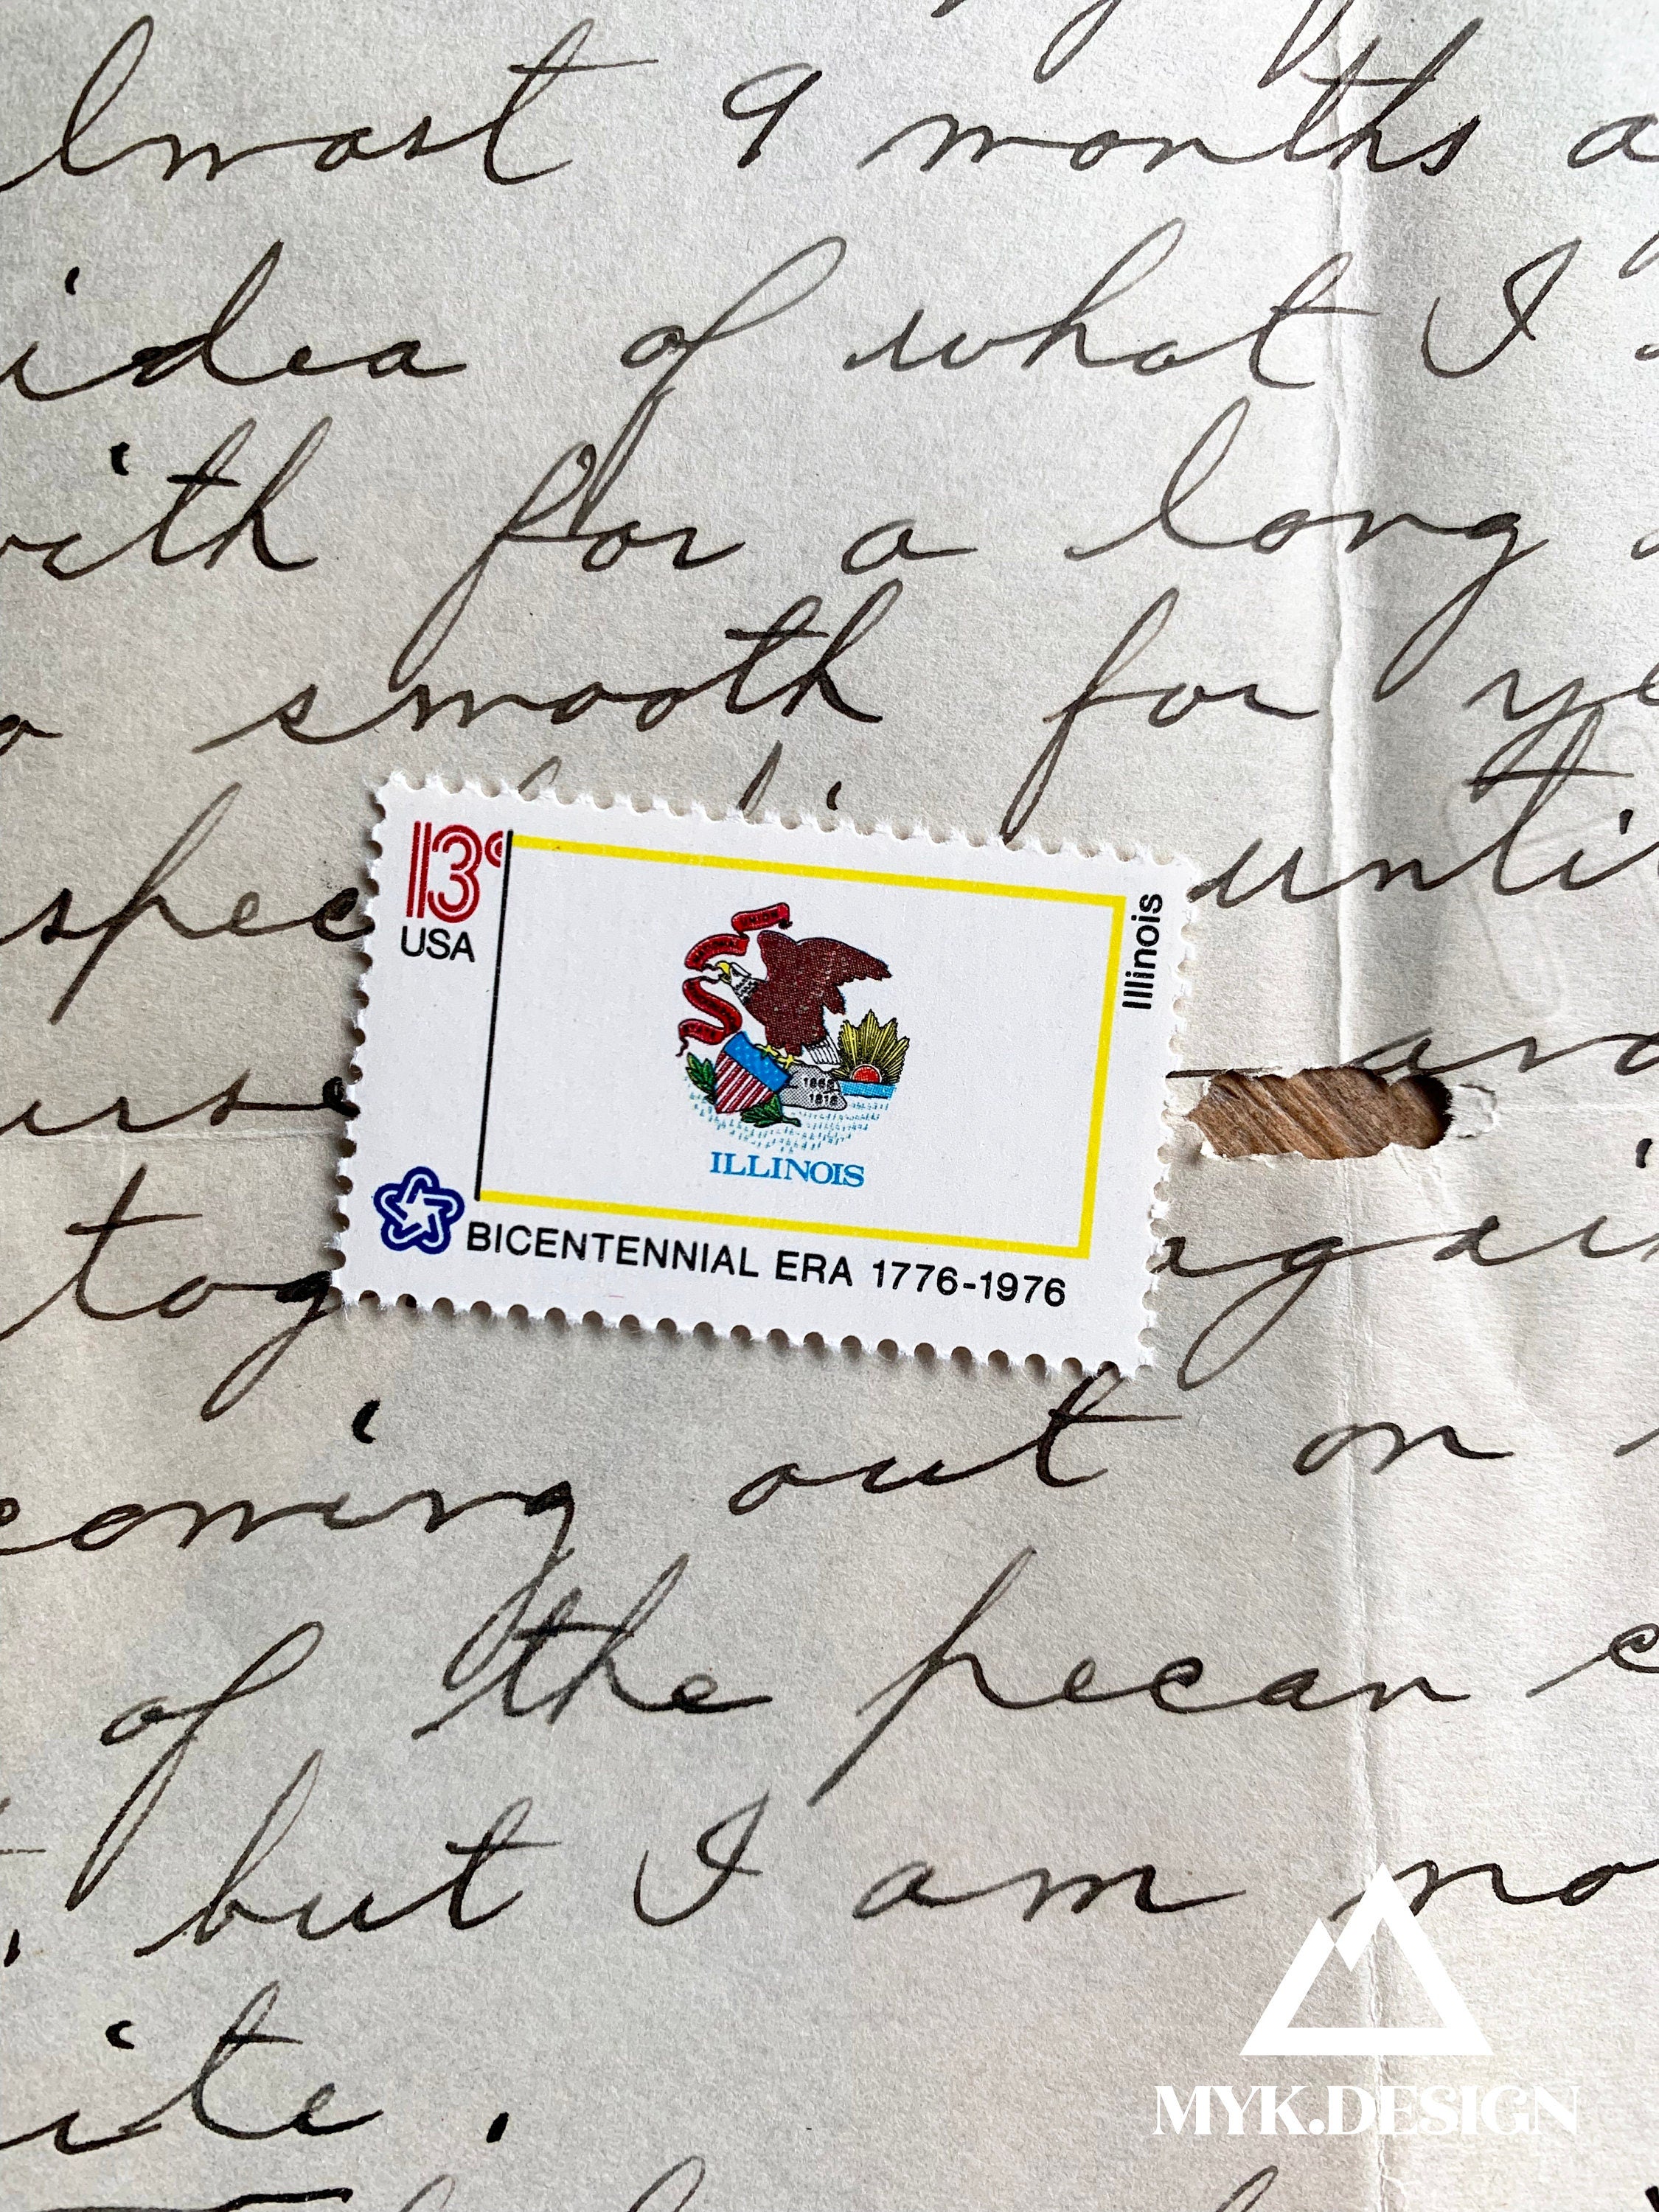 lmast 9 months a
idea of what I
with for a long
smooth for ye
spec
until
13c
USA
Illinois
1868
1818
ILLINOIS
BICENTENNIAL ERA 1776-1976
urse
and
tog
agai
coming out on
of the pecan c
, but I am no
ite.
MYK.DESIGN